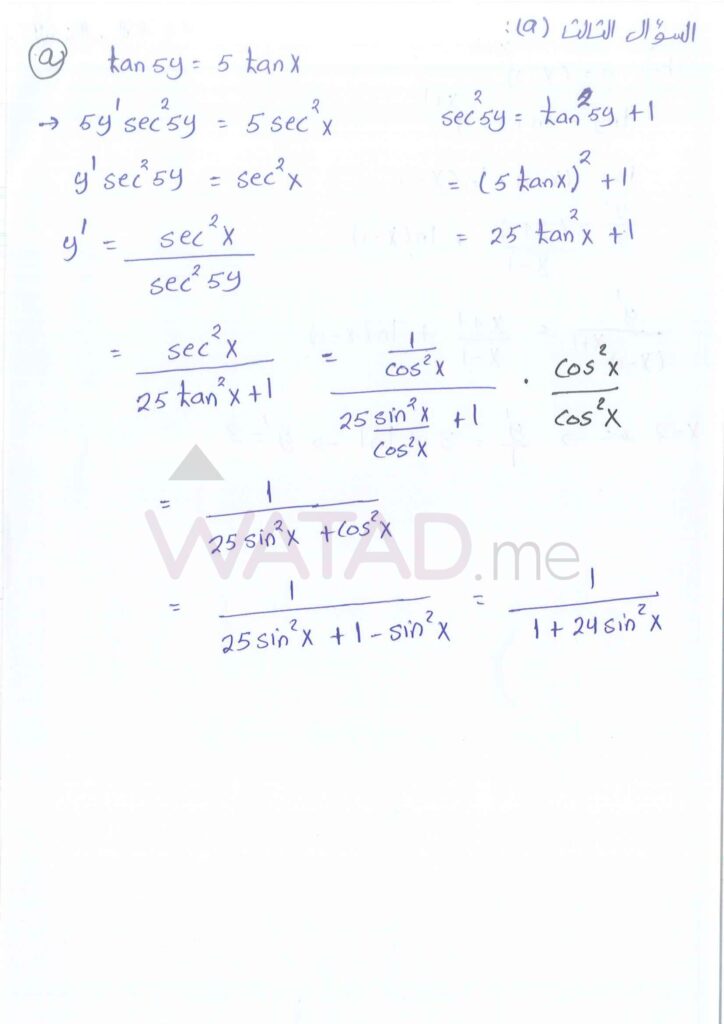 السؤال الثالث (a):
ⓐ tan 5y = 5 tan x
→ 5y' sec²5y = 5 sec²x
sec²5y = tan²5y + 1
y' sec²5y = sec²x
= (5 tanx)² + 1
y' = sec²x / sec²5y
= 25 tan²x + 1
= sec²x / (25 tan²x + 1) = (1/cos²x) / (25 sin²x/cos²x + 1) · cos²x/cos²x
= 1 / (25 sin²x + cos²x)
WATAD.me
= 1 / (25 sin²x + 1 - sin²x) = 1 / (1 + 24 sin²x)